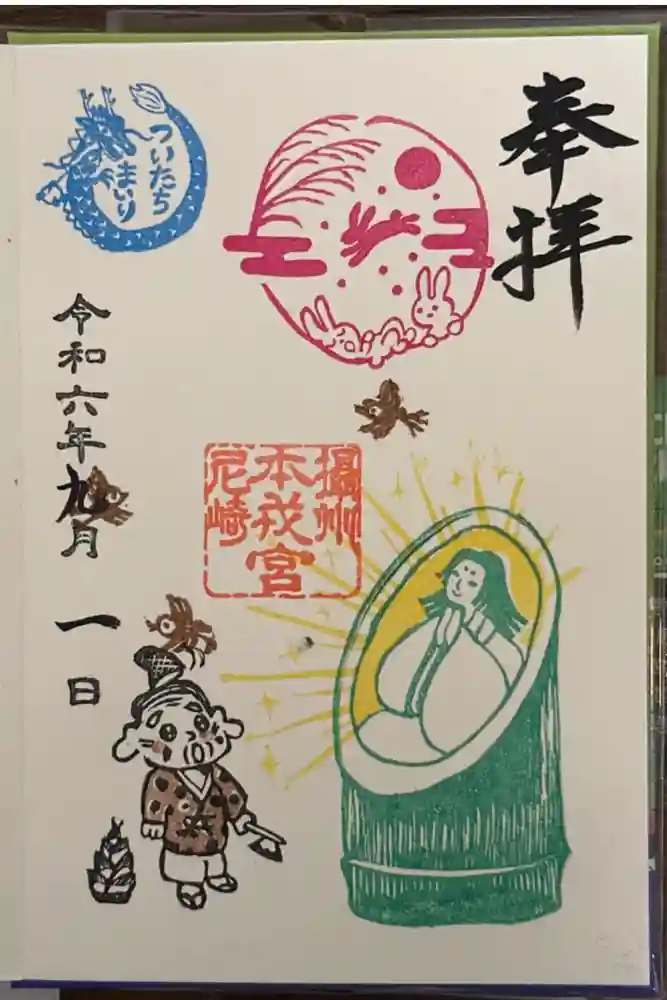 奉拝
ついたち
まいり
攝州
本戎宮
尼崎
令和六年九月一日